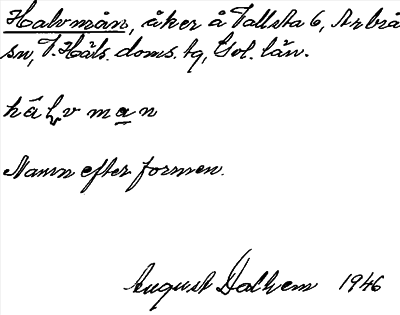 Halvmån, åker å Vallsta 6, Arbrå
sn, V. Häls. doms. tg, Gvl. län.
hálvman
Namn efter formen.
August Dalhem 1946